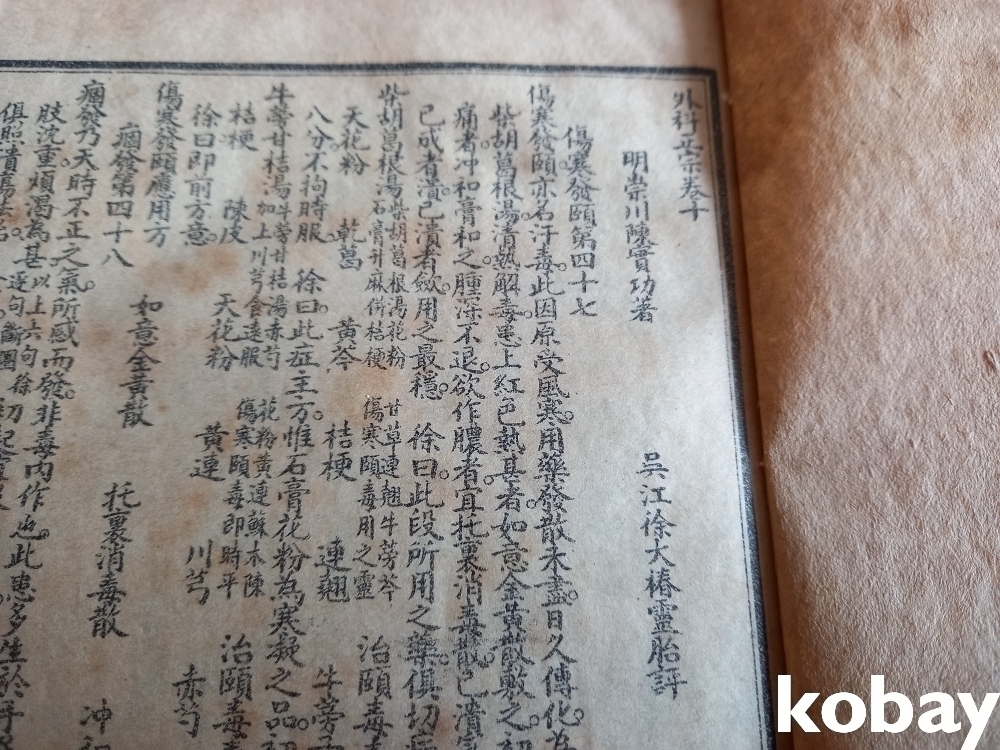 外科正宗卷十
明崇川陳實功著
吳江徐大椿靈胎評
傷寒發頤第四十七
傷寒發頤亦名汗毒此因原受風寒用藥發散未盡日久傳化為
柴胡葛根湯清熱解毒患上紅色熱甚者如意金黃散敷之初
痛者冲和膏和之腫深不退欲作膿者宜托裏消毒散已潰
已成者潰已潰者斂用之最穩 徐曰此段所用之藥俱切
柴胡葛根湯 柴胡葛根湯花粉 石膏升麻併桔梗 甘草連翹牛蒡芩 傷寒頤毒用之靈 治頤毒
天花粉 乾葛 黃芩 桔梗 連翹 牛蒡
八分不拘時服 徐曰此症主方惟石膏花粉為寒凝之品
牛蒡甘桔湯 牛蒡甘桔湯赤芍 加上川芎食遠服 花粉黃連蘇木陳 傷寒頤毒即時平 治頤毒
桔梗 陳皮 天花粉 黃連 川芎 赤芍
徐曰即前方意
傷寒發頤應用方
如意金黃散 托裏消毒散 冲
痼發第四十八
痼發乃天時不正之氣所感而發非毒內作也此患多生於手
肢沈重煩渴為甚 以上六句 逐句斷圈
俱照潰瘍
kobay